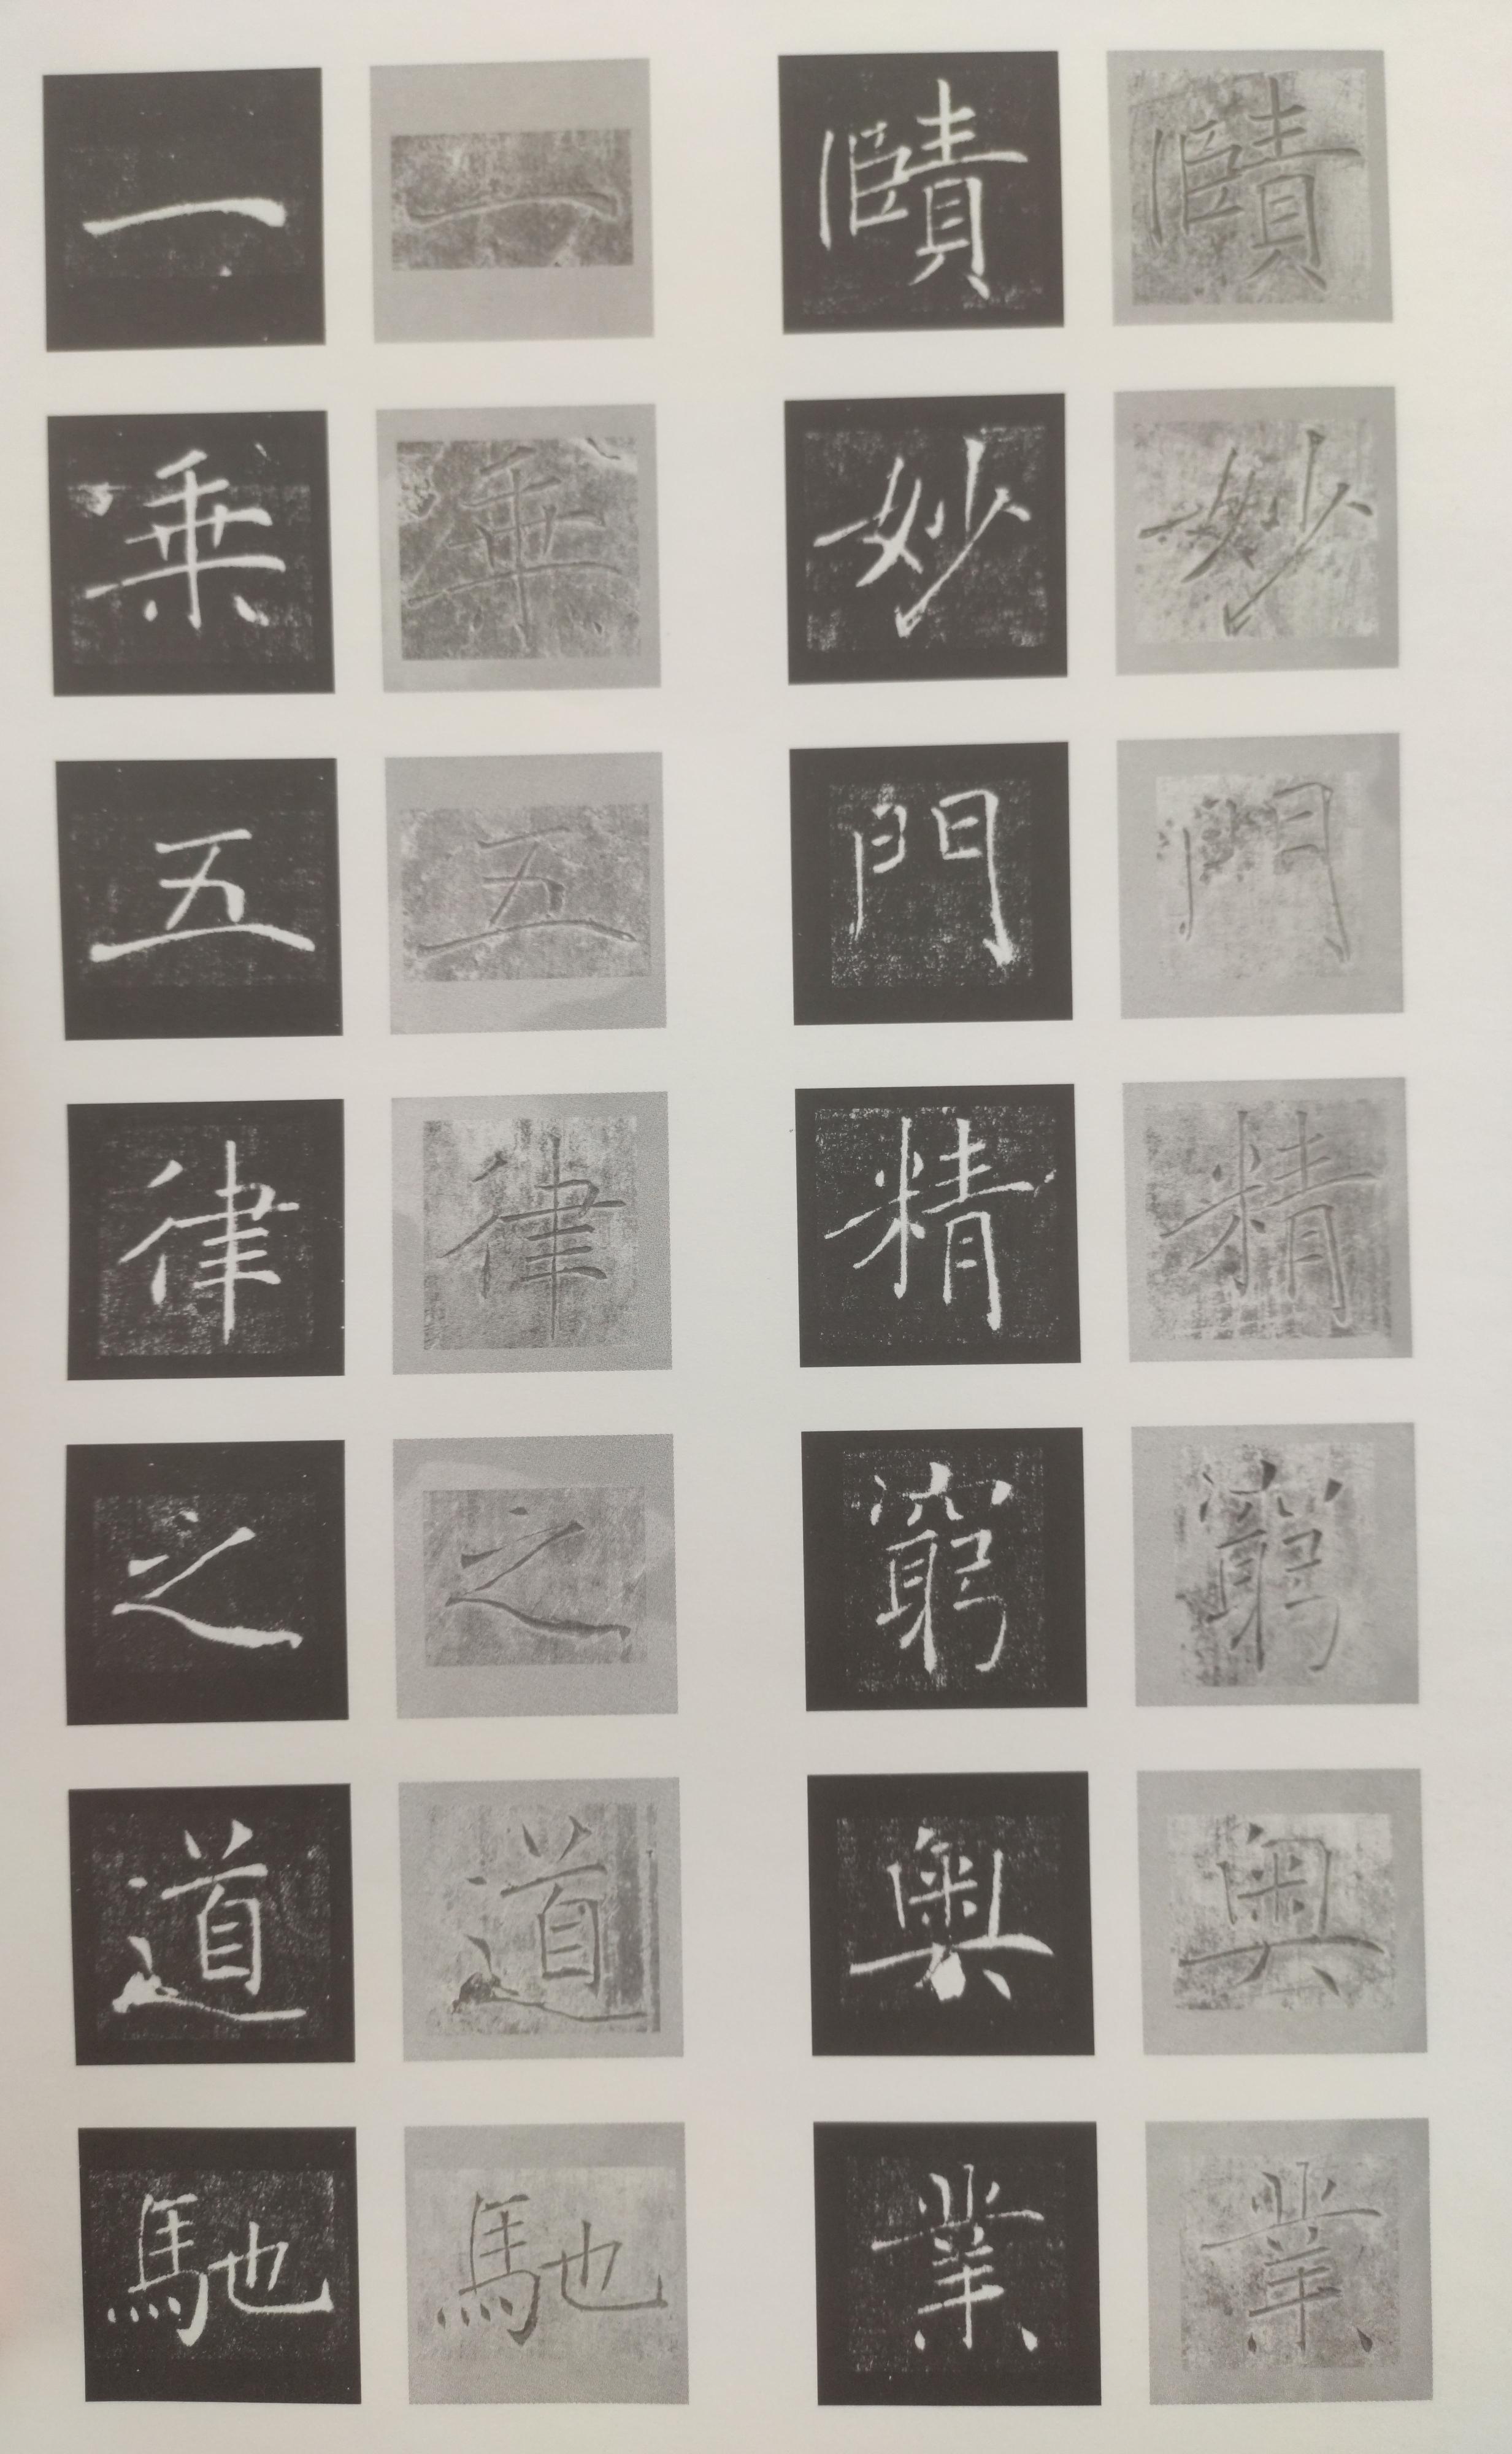 賾妙門精窮奧業
賾妙門精窮奧業
一乘五律之道馳
一乘五律之道馳